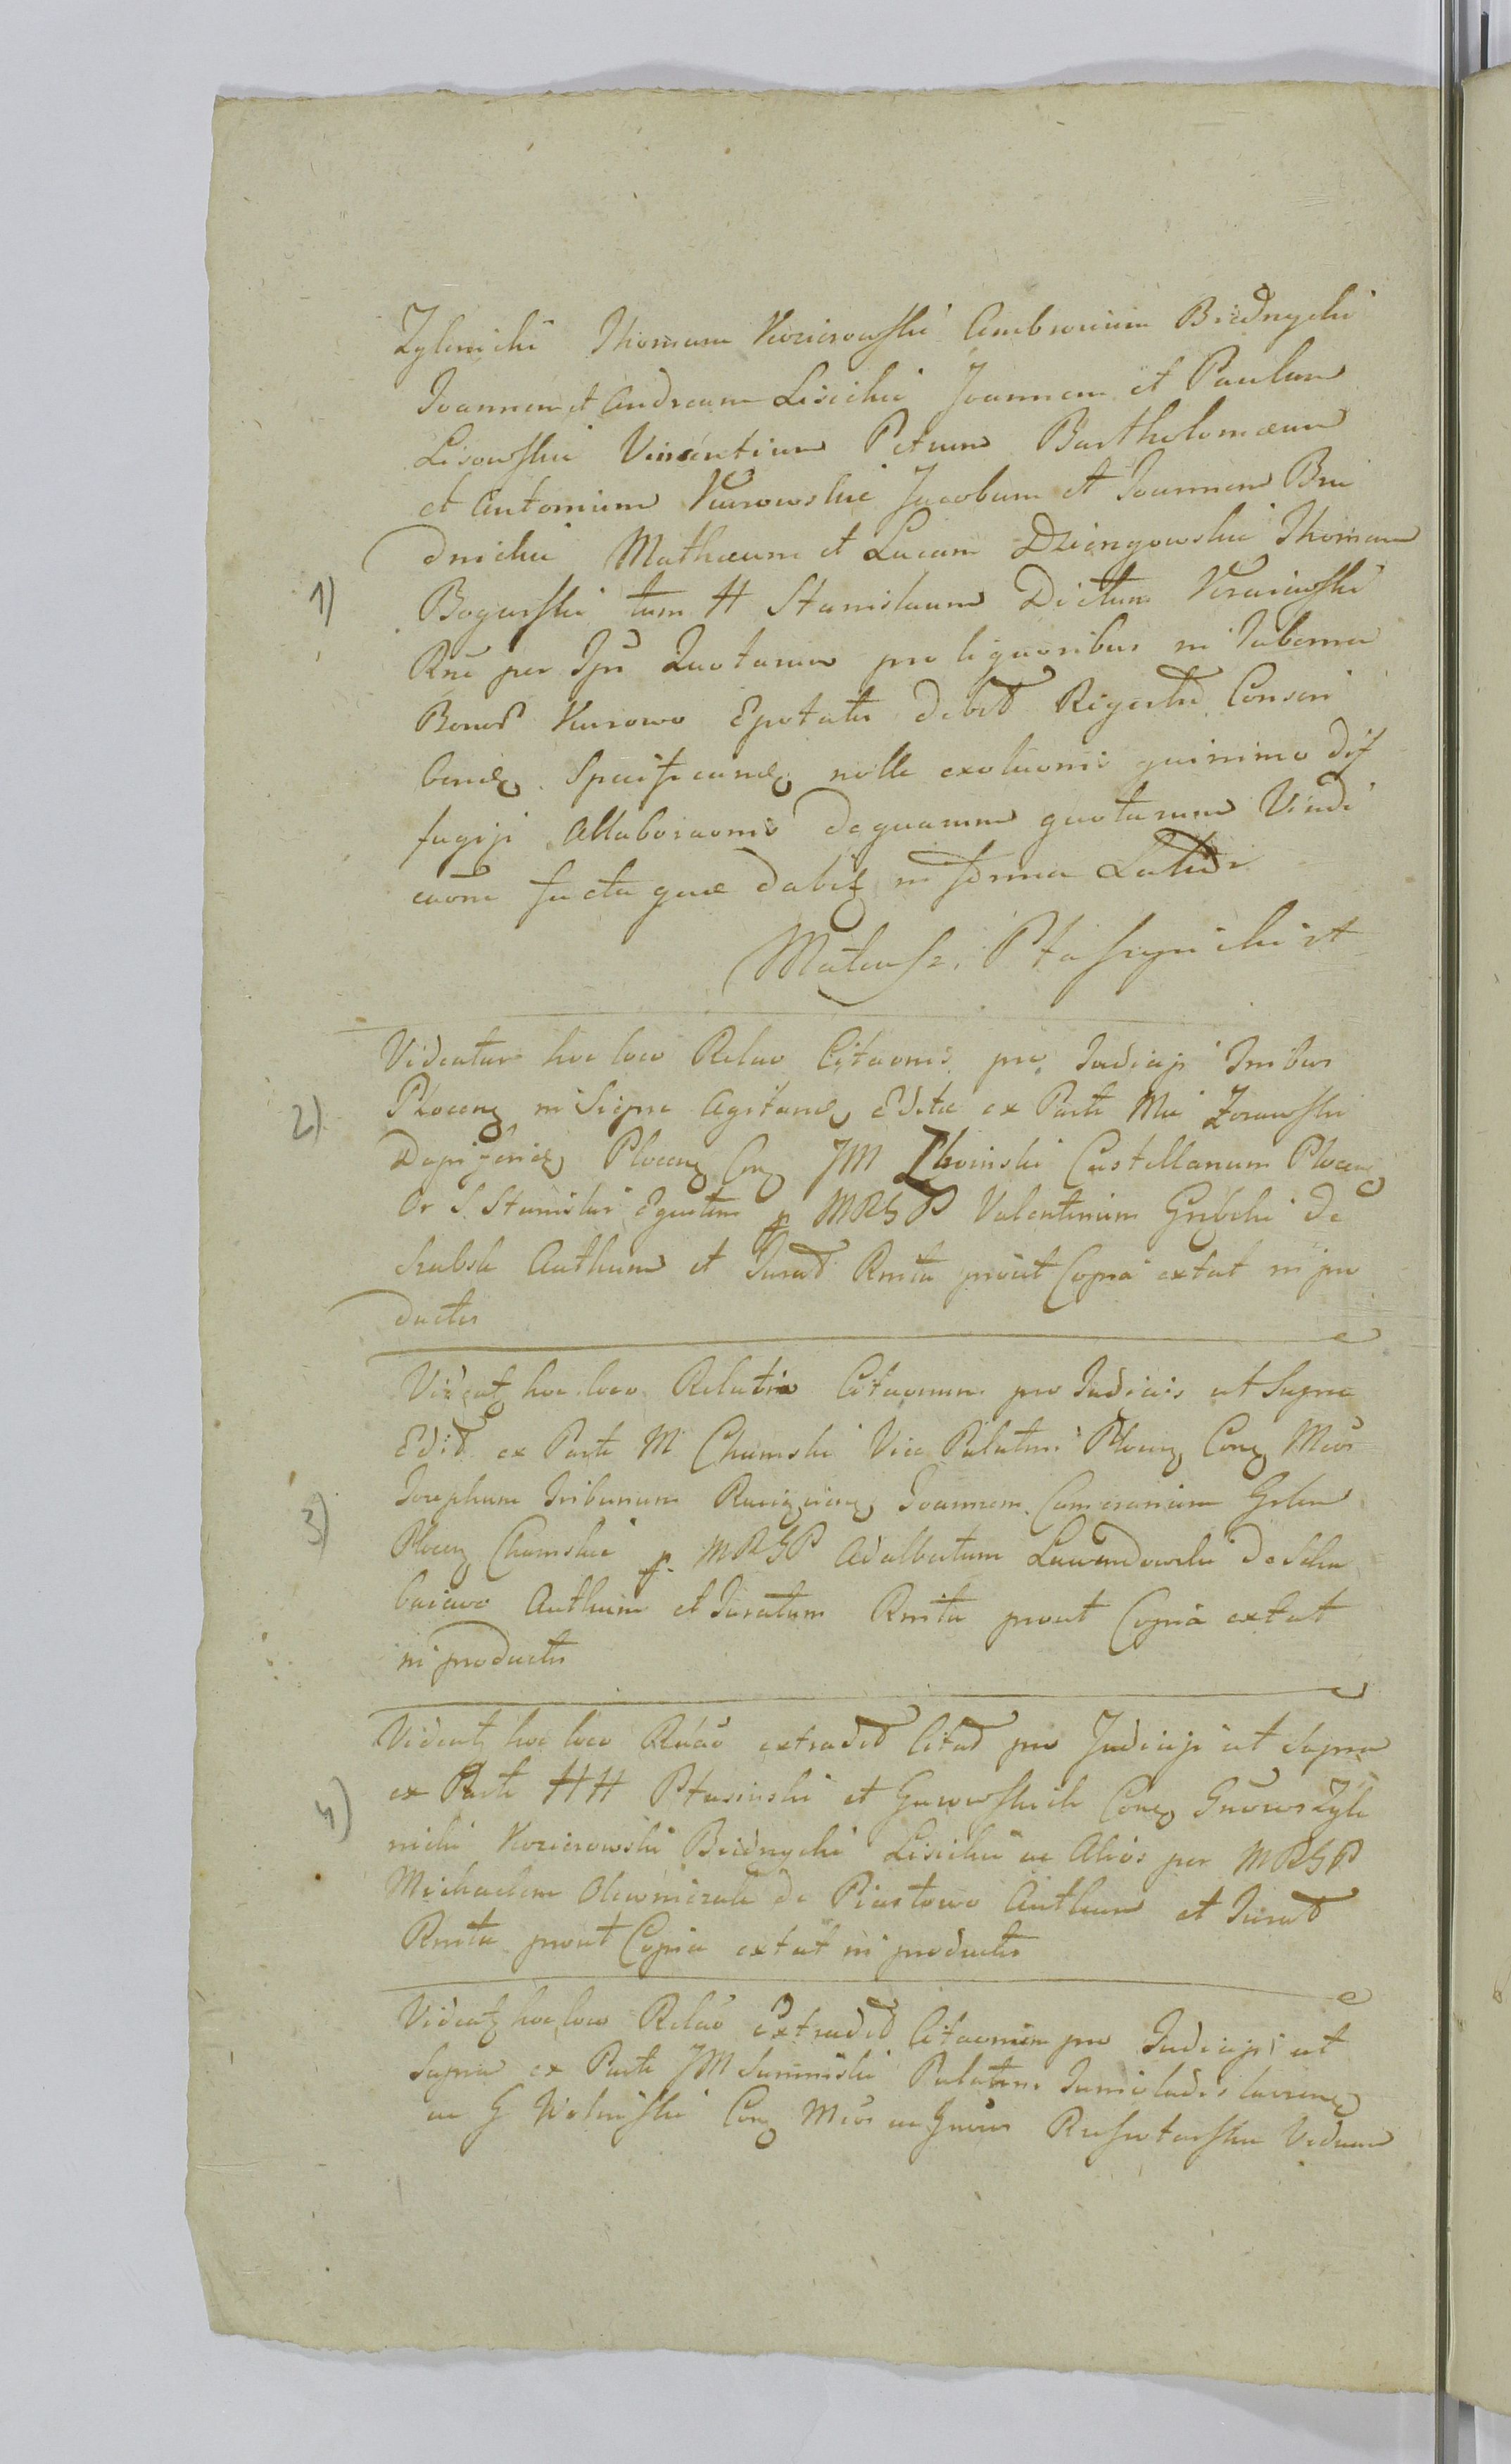 Zylinicki Thomam Kozierowski Ambrosium Biednycki
Joannem et Andream Lisicki Joannem et Paulum
Lisowskie Vincentium Petrum Bartholomæum
et Antonium Kurowskie Jacobum et Joannem Bie
dnickie Mathæum et Lucam Dziengowskie Thomam
1) Bogurski tum H Stanislaum Dictum
Rne per Ipū Quotarum pro liquoribus in Taberna
Bonoȓ Kurowo Epotatis debit Regestro Conscri
bend Specificand nolle exoluonis quinimo dif
fugiji Allaboraonis dequarum quotarum Vindi
caone factaque dabit in forma Latiori
Mateusz Ptaszynski
Videatur hoc loco Relao Citaonis pro Judicijs
2) Plocen in Sierpc Agitand Editæ ex Parte Mci Zorawski
Dapiferid Plocen Con JM Zboinski Castellanum Plocen
Or S. Stanislai Equitem p MRGP Valentinum Grębcki de
Srebrk Authum et Jurat Rnita prout Copia extat in pro
ductis
Videat hoc loco Relatio Citaonum pro Judiciis ut Supra
Edit ex Parte M Chamski Vice Palatini Plocen Con Mcos
3) Josephum Tribunum Raciązien Joannem Camerarium Grlem
Plocen Chamskie p MRGP Adalbertum Lewandowski de
Authum et Juratum Rnita prout Copia extat
in productis
Videat hoc loco Relao extradit Citat pro Judicijs ut Supra
4) ex Parte HH Ptasinski et Con Gnosos Zyli
nicki Kozierowski Biednycki Lisickie ac Alios per MRGP
Michaelem Olewniczak de Piastowo Authum et Jurat
Rnita prout Copia extat in productis
Videat hoc loco Relao Extradit Citaonum pro Judicijs ut
Supra ex Parte JM Suminski Palatini Juniwladislavien
ac G Wolinski Con Mcos ac Gnosos Viduam